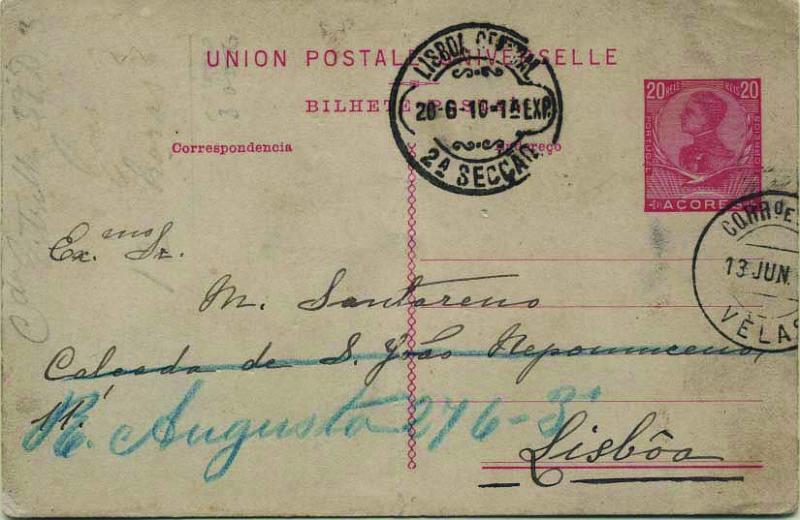 UNION POSTALE UNIVERSELLE
BILHETE POSTAL
Correspondencia
Endereço
LISBOA CENTRAL
20-6-10-1ª EXP.
2ª SECÇÃO
20 REIS REIS 20
PORTUGAL
CORREIO
AÇORES
CORRº E
13 JUN.
VELAS
Ex.mo Sr.
M. Santareno
Calçada de S. João Nepomuceno,
R. Augusta 276-3º
Lisbôa